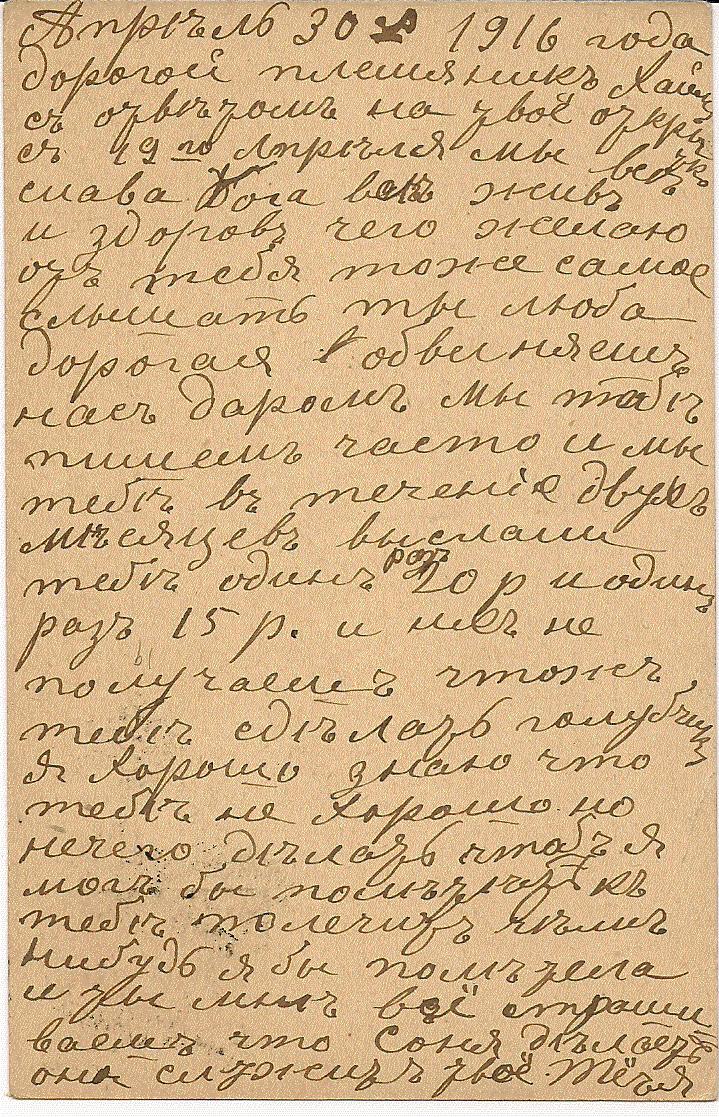 Апрѣль 30 1916 года
дорогой племяникъ Хаим
съ отвѣтомъ на твоё откры
тк
съ 19 го Апрѣля мы всѣ
слава Бога всѣ живъ
и здоровъ чего желаю
отъ тебя тоже самое
слышать ты люба
дорогая обвиняешъ
насъ даромъ мы табѣ
пишемъ часто и мы
тебѣ въ теченіе двухъ
мѣсяцевъ выслали
тебѣ одинъ разъ 20 р и одинъ
разъ 15 р. и не
получаешъ чтожъ
тебѣ сдѣлать голубчикъ
я хорошо знаю что
тебѣ не хорошо но
нечего дѣлать чтобъ я
могъ бы къ
тебѣ чѣмъ
нибудь я бы полѣтела
и ты мнѣ всё спраши
ваешъ что Соня дѣлаетъ
она служитъ твоё Тётя